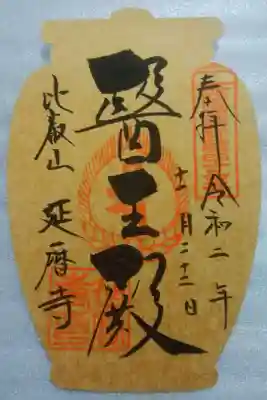 奉拝 令和二年
十一月二十二日
醫王殿
比叡山 延暦寺